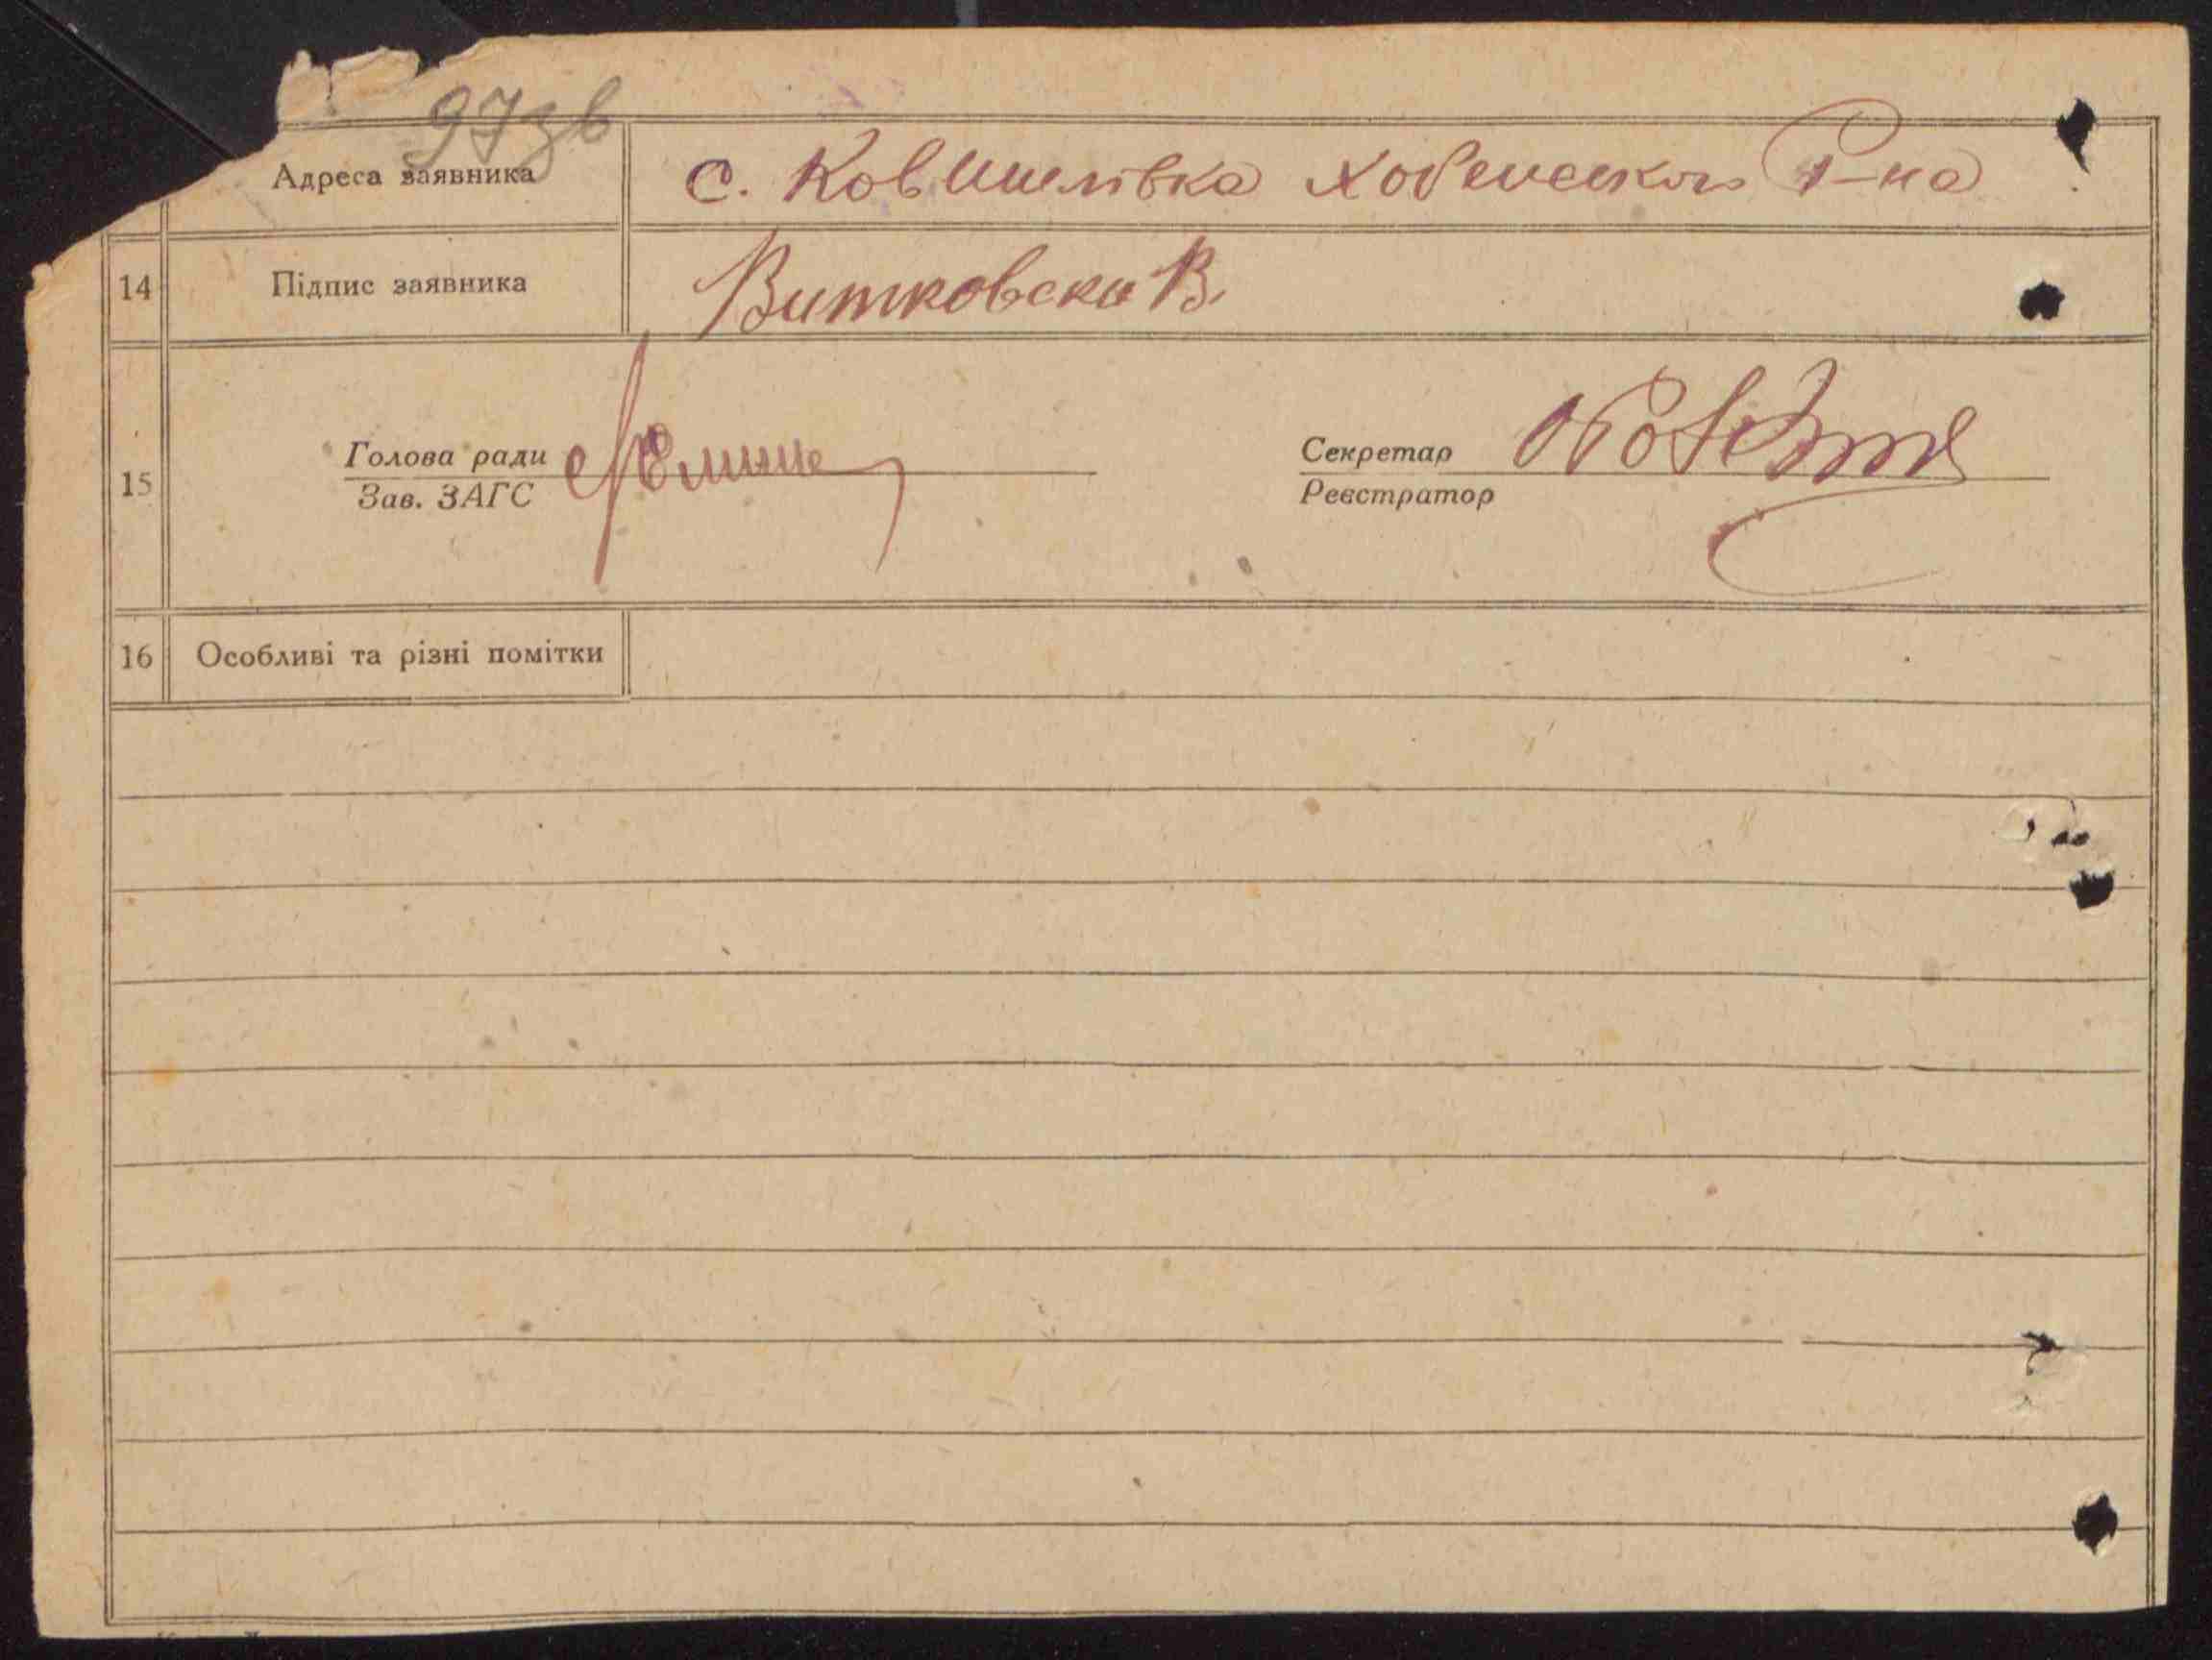 97зв
Адреса заявника с. Ковшилівка Хобенского р-на
14 Підпис заявника Витковски В.
15 Голова ради Секретар
Зав. ЗАГС Реєстратор
16 Особливі та різні помітки